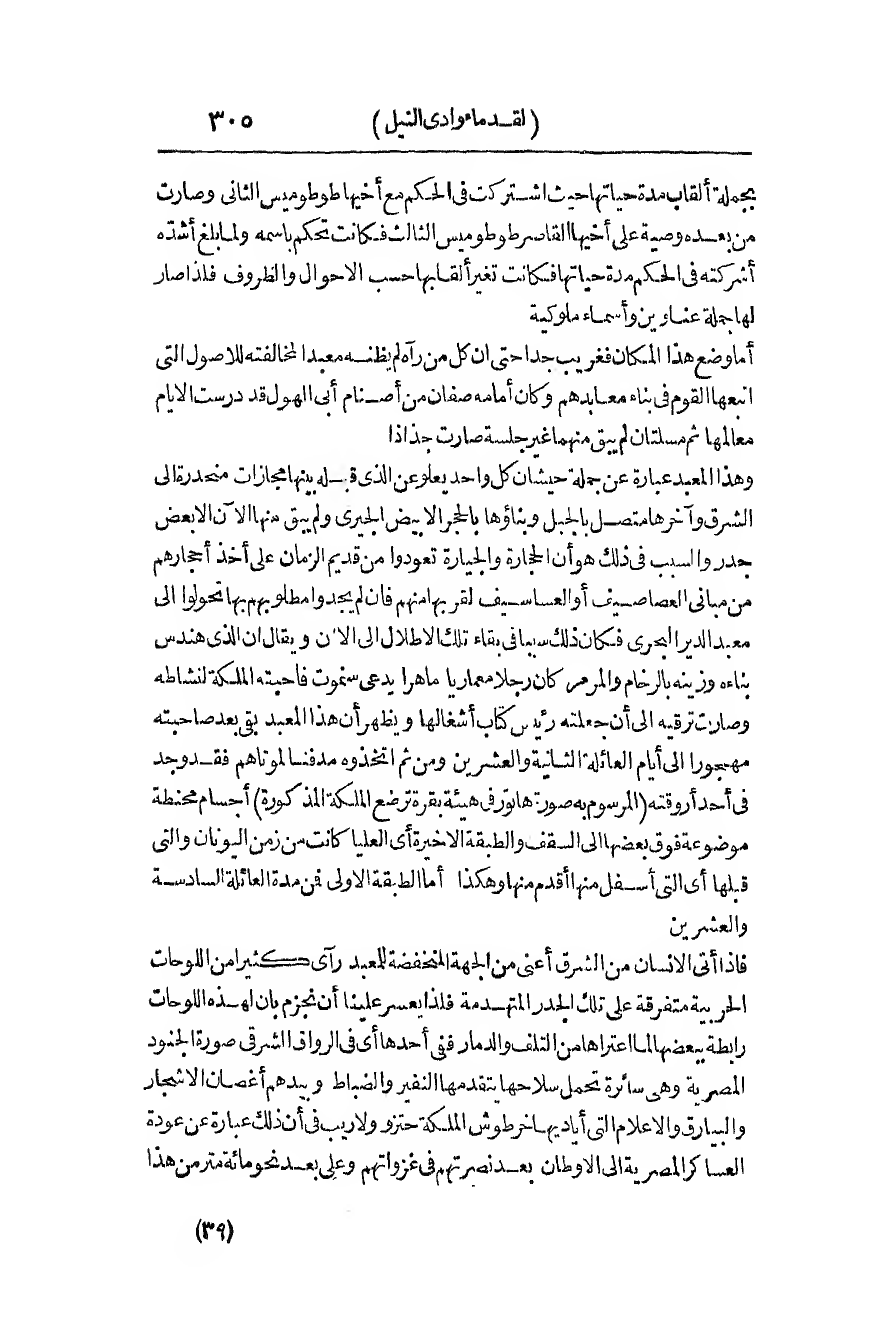 (لقدماء وادى النيل) ٣٠٥
بجملة ألقاب مدة حياتها حيث اشتركت فى الحكم مع أخيها طوطوميس الثانى وصارت
من بعده وصية على أخيها القاصر طوطوميس الثالث فكانت تحكم باسمه ولما بلغ أشده
أشركته فى الحكم مدة حياتها فكانت تغير ألقابها حسب الاحوال والظروف فلذا صار
لها جملة عناوين وأسماء ملوكية
أما وضع هذا المكان فغريب جدا حتى ان كل من رآه لم يظنه معبدا لمخالفته للاصول التى
اتبعها القوم فى بناء معابدهم وكان أمامه صفان من أصنام أبى الهول قد درست الايام
معالمها ثم مسلتان لم يبق منهما غير جلسة صارت جذاذا
وهذا المعبد عبارة عن جملة حيشان كل واحد يعلو عن الذى قبله بينها مجازات منحدرة الى
الشرق وآخرها متصل بالجبل وبناؤها بالحجر الابيض الجيرى ولم يبق منها الآن الا بعض
جدر والسبب فى ذلك هو أن الحجارة والجيارة تعودوا من قديم الزمان على أخذ أحجارهم
من مبانى العصاصيف أو العساسيف لقربها منهم فان لم يجدوا مطلوبهم بها تحولوا الى
معبد الدير البحرى فكان ذلك سببا فى بقاء تلك الاطلال الى الان ويقال ان الذى هندس
بناءه وزينه بالرخام والمرمر كان رجلا معماريا ماهرا يدعى سنموت فاحبته الملكة لنشاطه
وصارت ترقيه الى أن جعلته رئيس كتاب أشغالها ويظهر أن هذا المعبد بقى بعد صاحبته
مهجورا الى أيام العائلة الثانية والعشرين ومن ثم اتخذوه مدفنا لموتاهم فقد وجد
فى أحد أروقته (المرسوم به صورة هاتور فى هيئة بقرة ترضع الملكة المذكورة) أجسام محنطة
موضوعة فوق بعضها الى السقف والطبقة الاخيرة أى العليا كانت من زمن اليونان والتى
قبلها أى التى أسفل منها أقدم منها وهكذا أما الطبقة الاولى فمن مدة العائلة السادسة
والعشرين
فاذا أتى الانسان من الشرق أعنى من الجهة المنخفضة للمعبد رآى كثيرا من اللوحات
الحربية متفرقة على تلك الجدر المتهدمة فلذا يعسر علينا أن نجزم بان لهذه اللوحات
رابطة ببعضها لما اعتراها من التلف والدمار ففى أحدها أى فى الرواق الشرقى صورة الجنود
المصرية وهى سائرة تحمل سلاحها يتقدمها النفير والضباط وبيدهم أغصان الاشجار
والبيارق والاعلام التى أياديها خرطوش الملكة حتزو ولا ريب فى أن ذلك عبارة عن عودة
العساكر المصرية الى الاوطان بعد نصرتهم فى غزواتهم وعلى بعد نحو مائة متر من هذا
(٣٩)